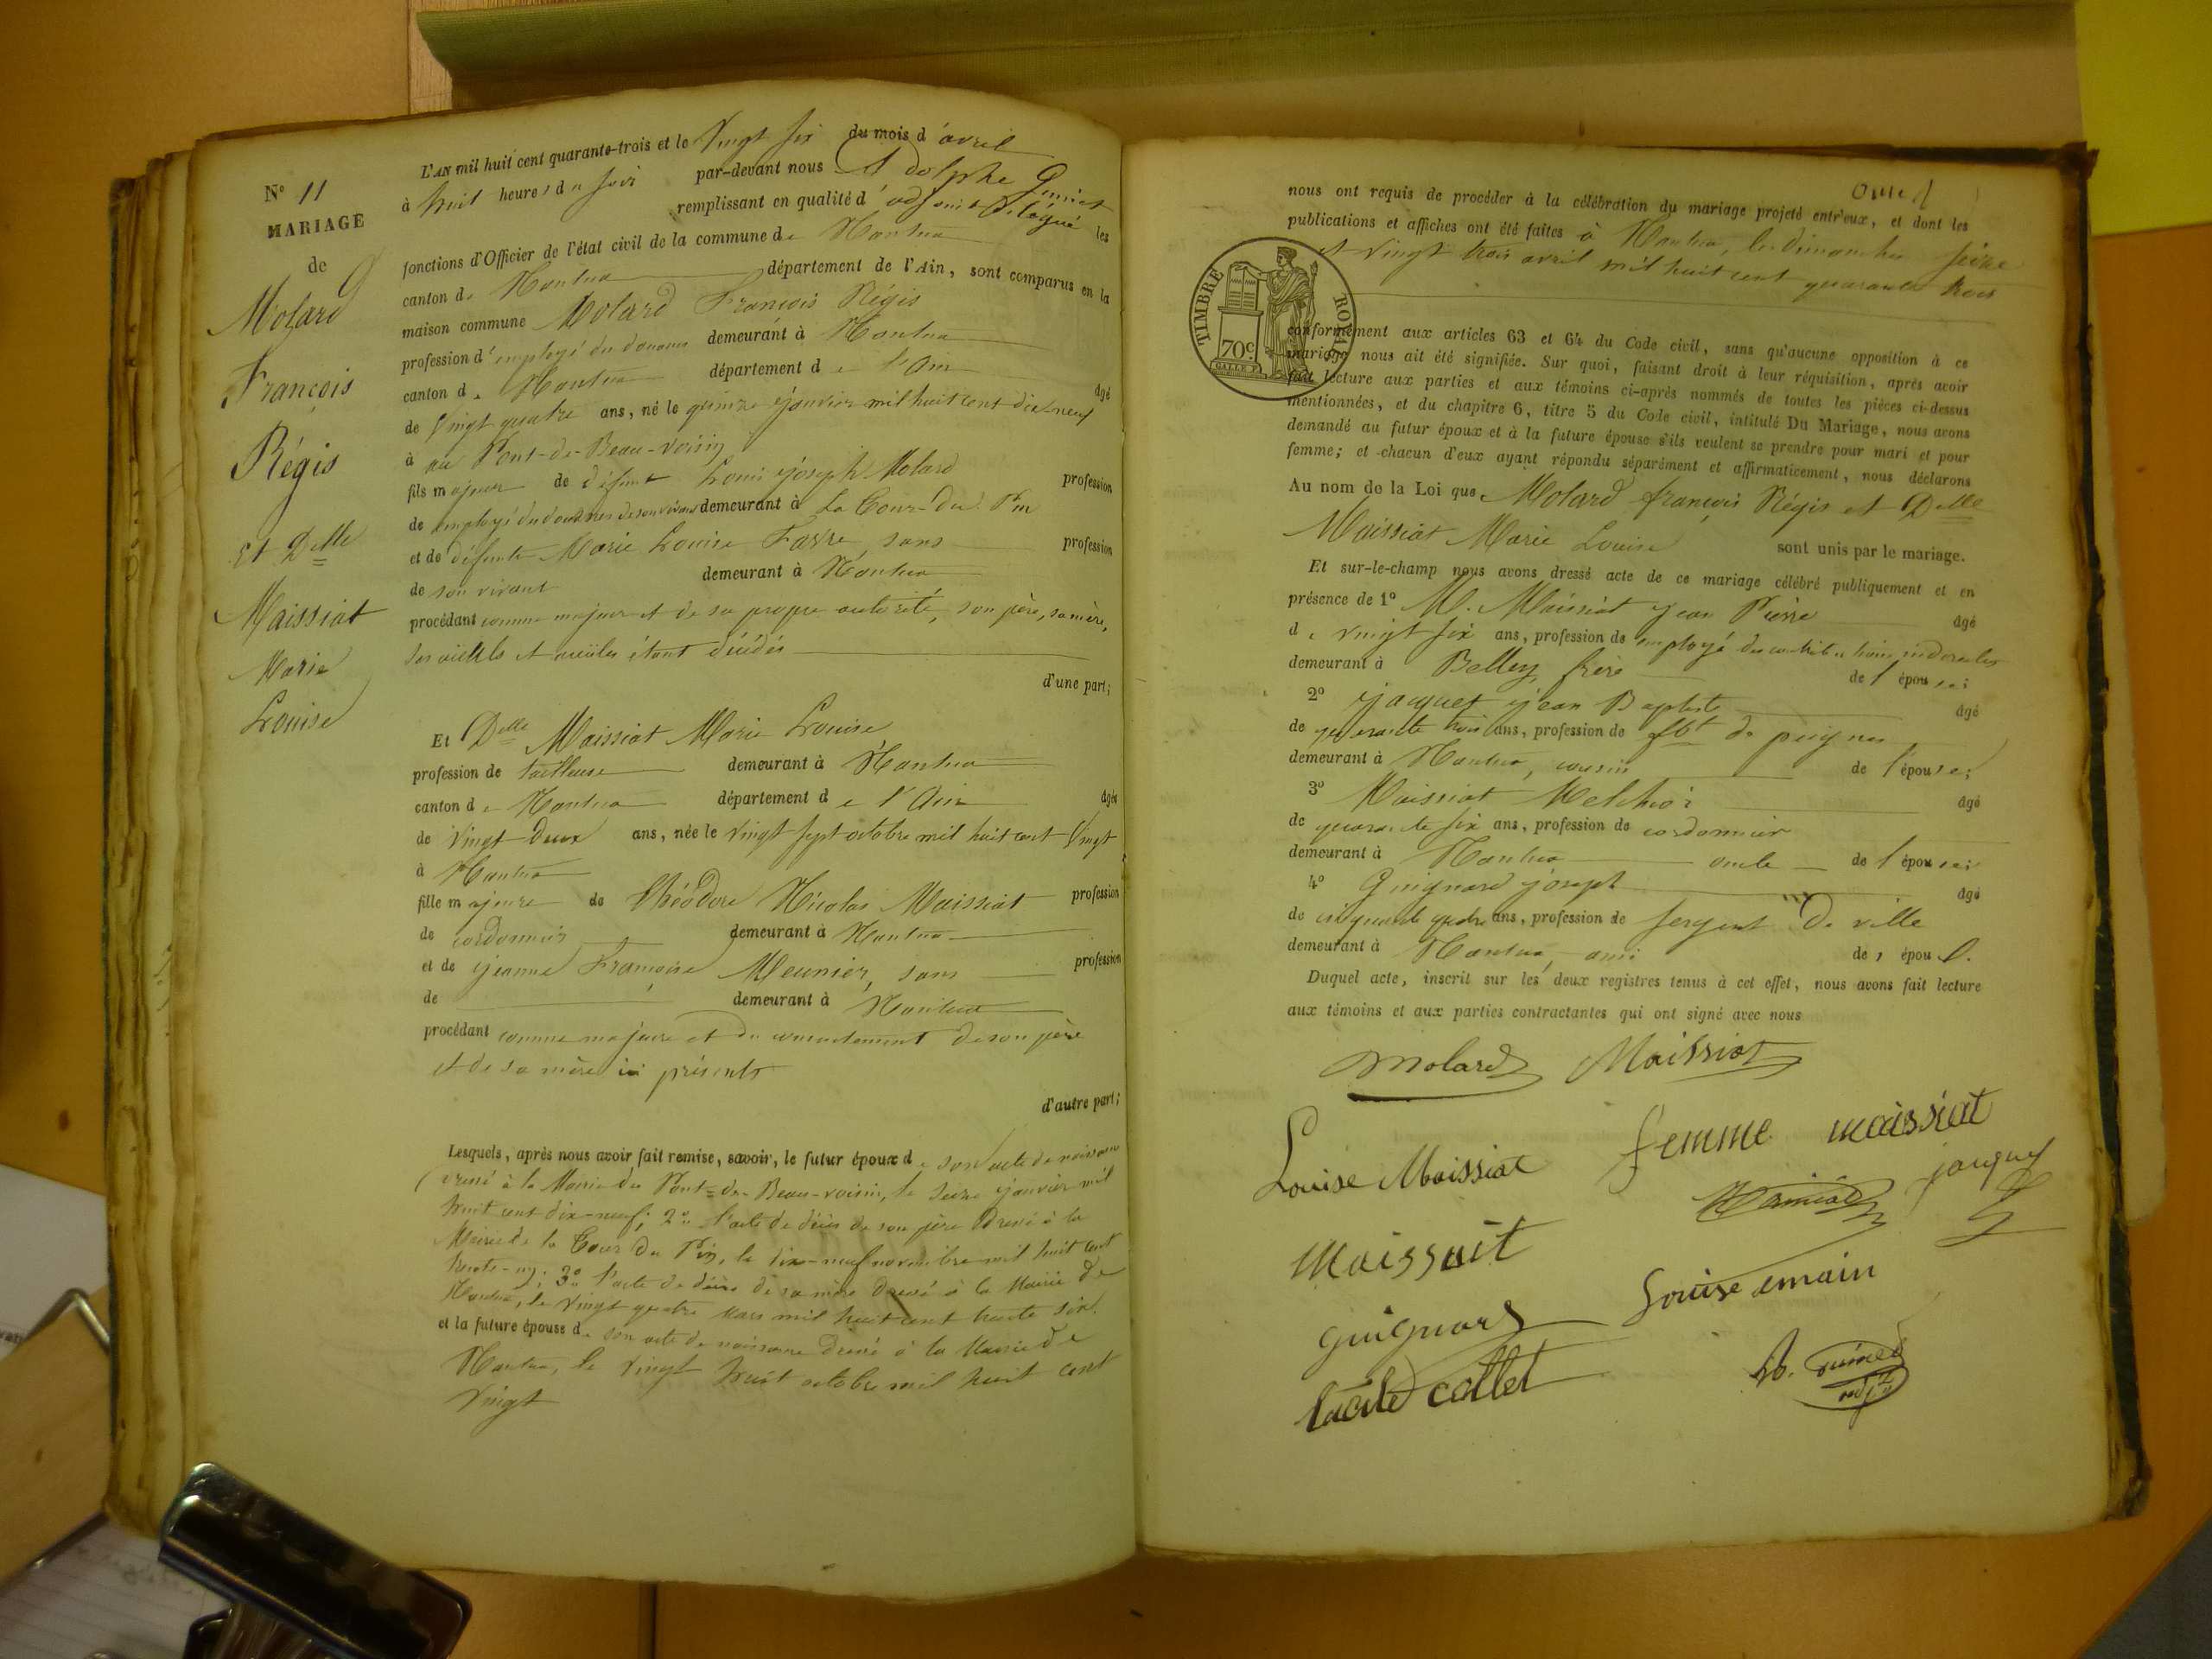 N° 11
MARIAGE
de
Molard
François
Régis
Et Delle
Maissiat
Marie
Louise
L'AN mil huit cent quarante-trois et le Vingt six du mois d'avril
à huit heures du soir par-devant nous Adolphe
remplissant en qualité d'adjoint délégué les
fonctions d'Officier de l'état civil de la commune de Nantua
canton de Nantua département de l'Ain, sont comparus en la
maison commune Molard François Régis
profession d'employé des douanes demeurant à Nantua
canton de Nantua département de l'Ain âgé
de Vingt quatre ans, né le quinze janvier mil huit cent dix neuf
à au Pont-de-Beau-voisin
fils majeur de défunt Louis joseph Molard profession
de employé des douanes de son vivant demeurant à La Tour-du-Pin
et de défunte Marie Louise Favre, sans profession
de son vivant demeurant à Nantua
procédant comme majeur et de sa propre autorité, son père, sa mère,
ses aieuls et aieules étant décédés
d'une part;
Et Delle Maissiat Marie Louise
profession de tailleuse demeurant à Nantua
canton de Nantua département de l'Ain âgée
de Vingt-Deux ans, née le vingt sept octobre mil huit cent Vingt
à Nantua
fille majeure de Théodore Nicolas Maissiat profession
de cordonnier demeurant à Nantua
et de jeanne Françoise Meunier, sans profession
de demeurant à Nantua
procédant comme majeure et du consentement de son père
et de sa mère ici présents
d'autre part;
Lesquels, après nous avoir fait remise, savoir, le futur époux de son acte de naissance
dressé à la Mairie du Pont-de-Beau-voisin, le seize janvier mil
huit cent dix-neuf; 2° l'acte de décès de son père dressé à la
Mairie de la Tour du Pin, le dix-neuf novembre mil huit cent
trente-un; 3° l'acte de décès de sa mère dressé à la Mairie de
Nantua, le vingt quatre mars mil huit cent trente six.
et la future épouse de son acte de naissance dressé à la Mairie de
Nantua, le vingt huit octobre mil huit cent
vingt
nous ont requis de procéder à la célébration du mariage projeté entr'eux, et dont les
publications et affiches ont été faites à Nantua, les dimanches seize
et vingt trois avril mil huit cent quarante trois
TIMBRE ROYAL
70c
conformément aux articles 63 et 64 du Code civil, sans qu'aucune opposition à ce
mariage nous ait été signifiée. Sur quoi, faisant droit à leur réquisition, après avoir
fait lecture aux parties et aux témoins ci-après nommés de toutes les pièces ci-dessus
mentionnées, et du chapitre 6, titre 5 du Code civil, intitulé Du Mariage, nous avons
demandé au futur époux et à la future épouse s'ils veulent se prendre pour mari et pour
femme; et chacun d'eux ayant répondu séparément et affirmativement, nous déclarons
Au nom de la Loi que Molard françois Régis et Delle
Maissiat Marie Louise sont unis par le mariage.
Et sur-le-champ nous avons dressé acte de ce mariage célébré publiquement et en
présence de 1° M. Maissiat jean Pierre âgé
de vingt six ans, profession de employé des contributions indirectes
demeurant à Belley, frère de l'épouse;
2° jacquet jean Baptiste âgé
de quarante trois ans, profession de fbt de peignes
demeurant à Nantua, cousin de l'épouse;
3° Maissiat Melchior âgé
de quarante six ans, profession de cordonnier
demeurant à Nantua oncle de l'épouse;
4° Guignard joseph âgé
de cinquante quatre ans, profession de sergent de ville
demeurant à Nantua, ami de épou
Duquel acte, inscrit sur les deux registres tenus à cet effet, nous avons fait lecture
aux témoins et aux parties contractantes qui ont signé avec nous
molard Maissiat
Louise Maissiat femme maissiat
jacquet
Maissiat
guignard Louise emain
collet